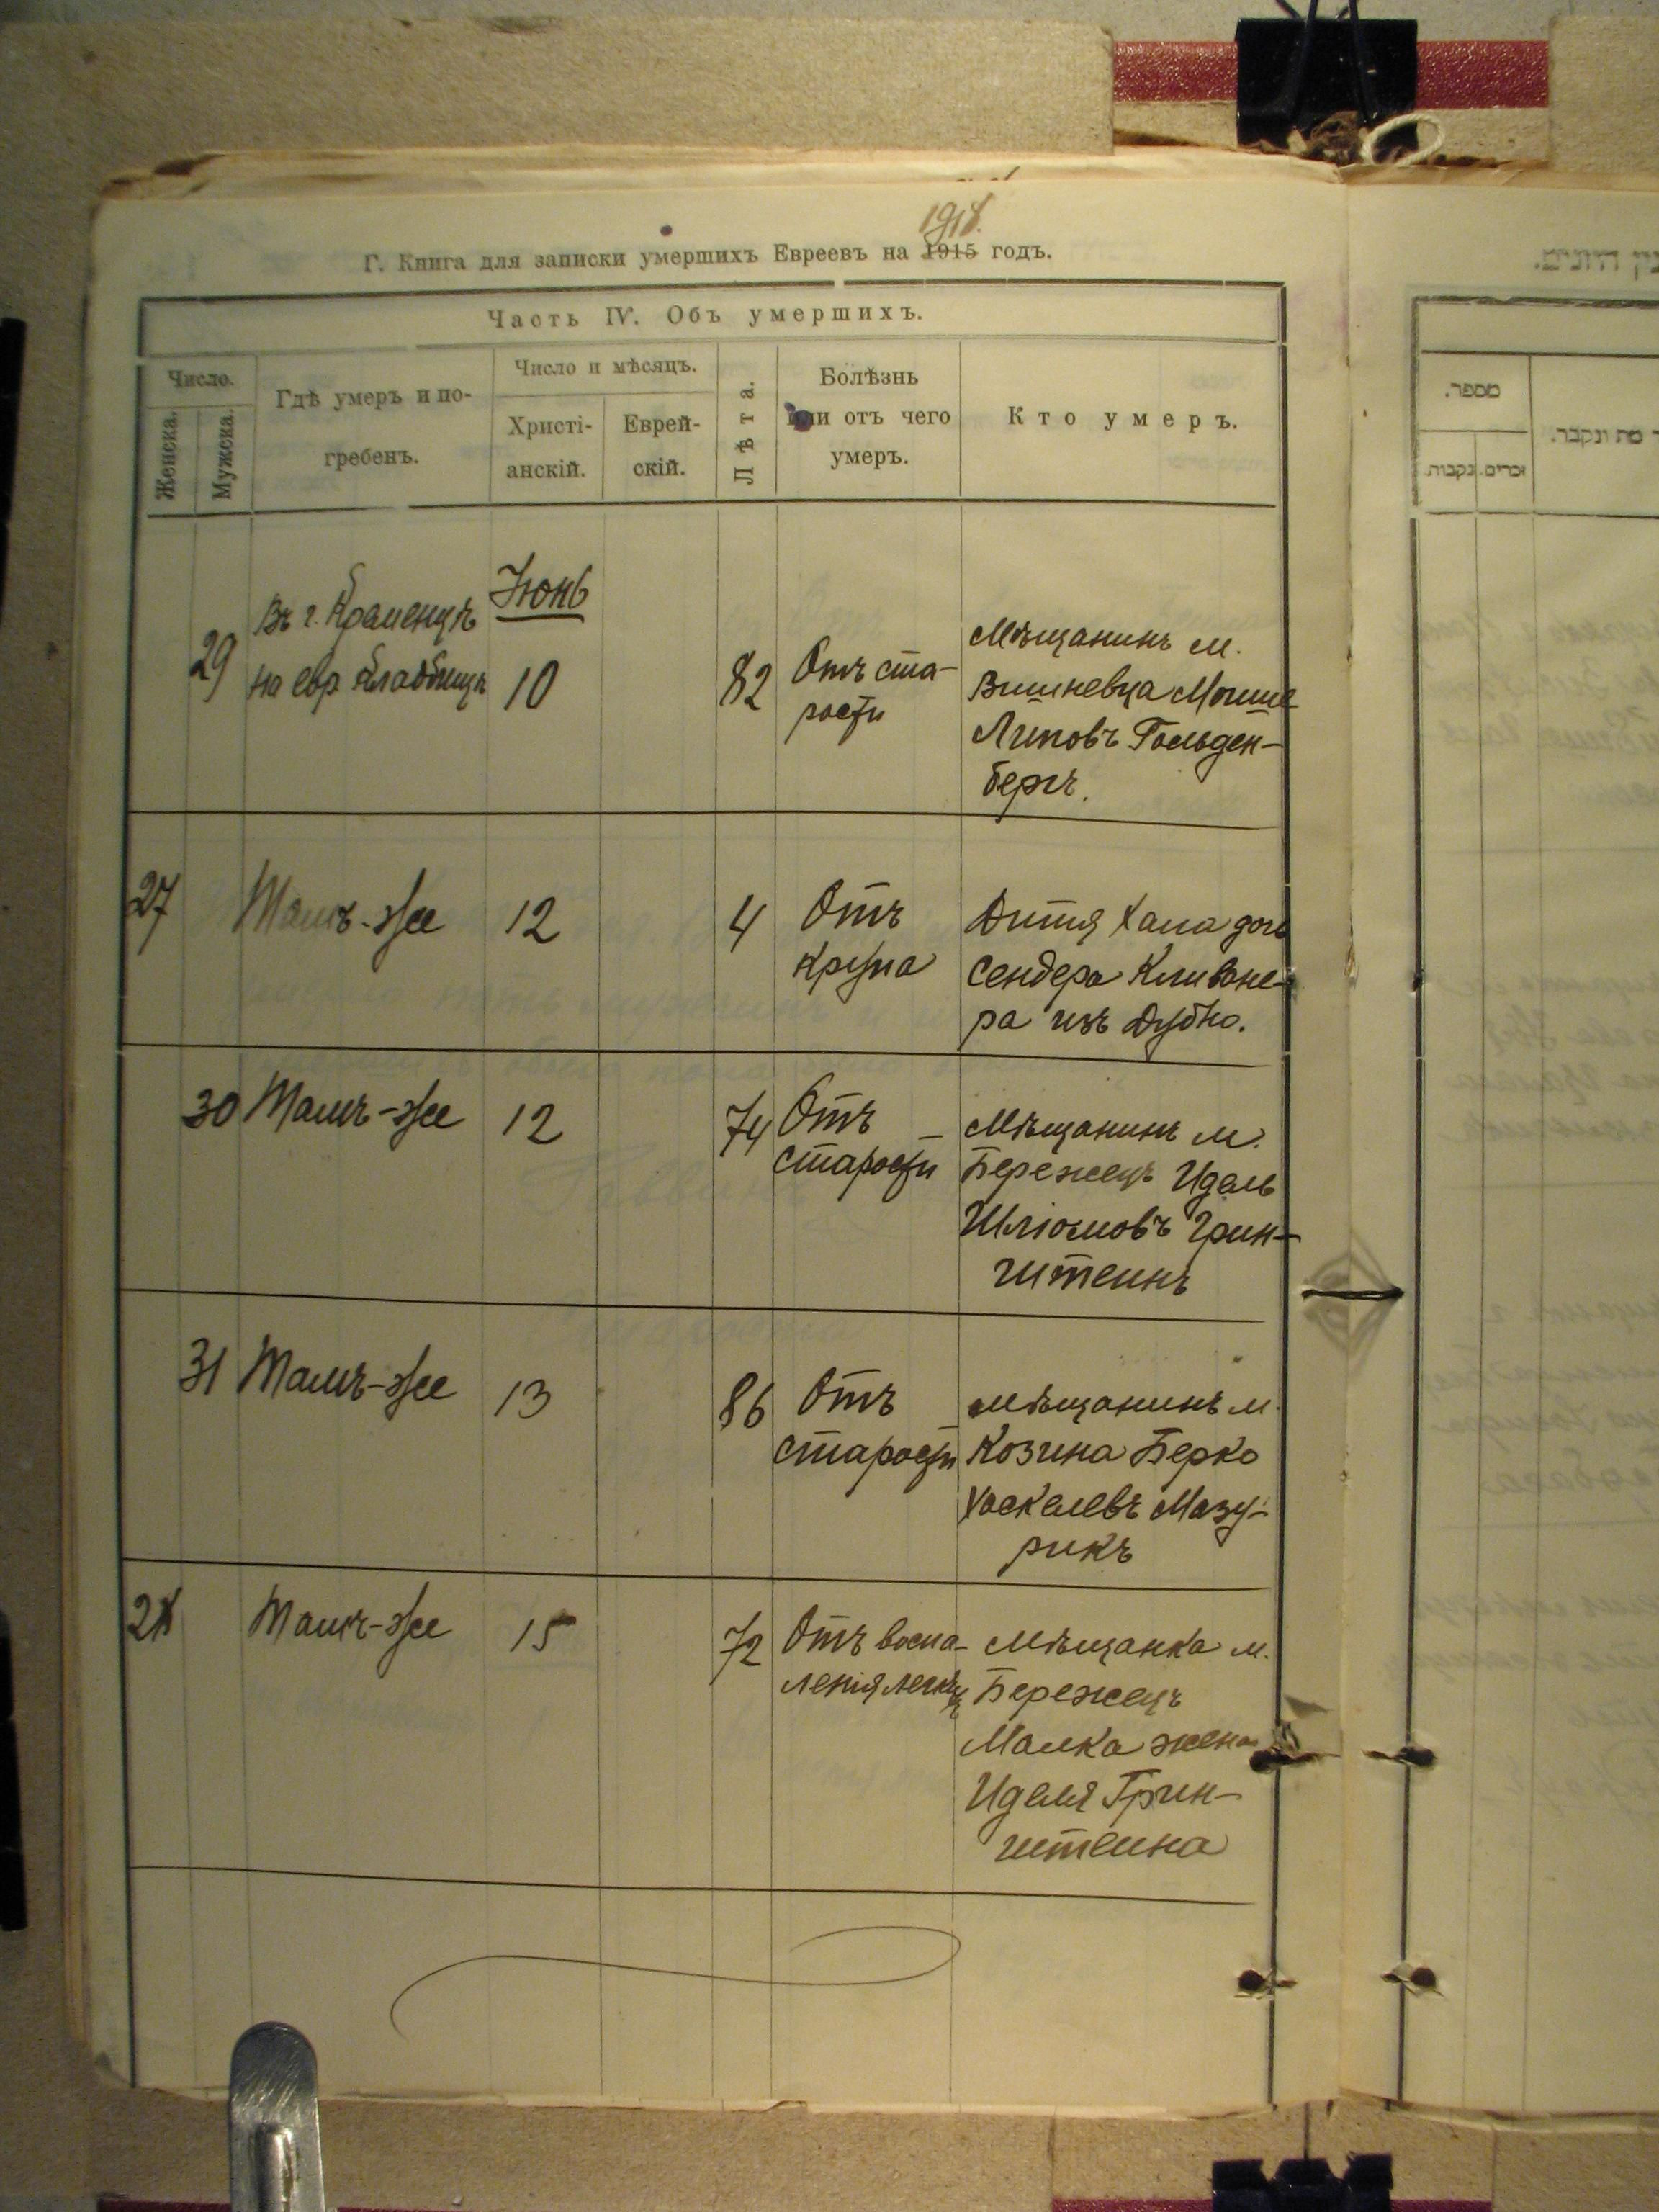 1918.
Г. Книга для записки умершихъ Евреевъ на 1915 годъ.
Часть IV. Объ умершихъ.
Число.
Женска.
Мужска.
Гдѣ умеръ и по-
гребенъ.
Число и мѣсяцъ.
Христі-
анскій.
Еврей-
скій.
Лѣта.
Болѣзнь
или отъ чего
умеръ.
Кто умеръ.
29
Въ г. Кременцѣ
на евр кладбищѣ
Іюнь
10
82
Отъ ста-
рости
Мѣщанинъ м.
Вишневца Мошше
Липовъ Гольден-
бергъ.
27
Тамъ-же
12
4
Отъ
крупа
Дитя Хана дочь
Сендера Кливане-
ра изъ Дубно.
30
Тамъ-же
12
74
Отъ
старости
Мѣщанинъ м.
Бережецъ Идель
Шліомовъ Грин-
штеинъ
31
Тамъ-же
13
86
Отъ
старости
Мѣщанинъ м.
Козина Берко
Хаскелевъ Мазу-
рикъ
28
Тамъ-же
15
72
Отъ воспа-
ленія легкихъ
Мѣщанка м.
Бережецъ
Малка жена
Иделя Грин-
штеина
מספר.
זכרים.
נקבות.
מת ונקבר.